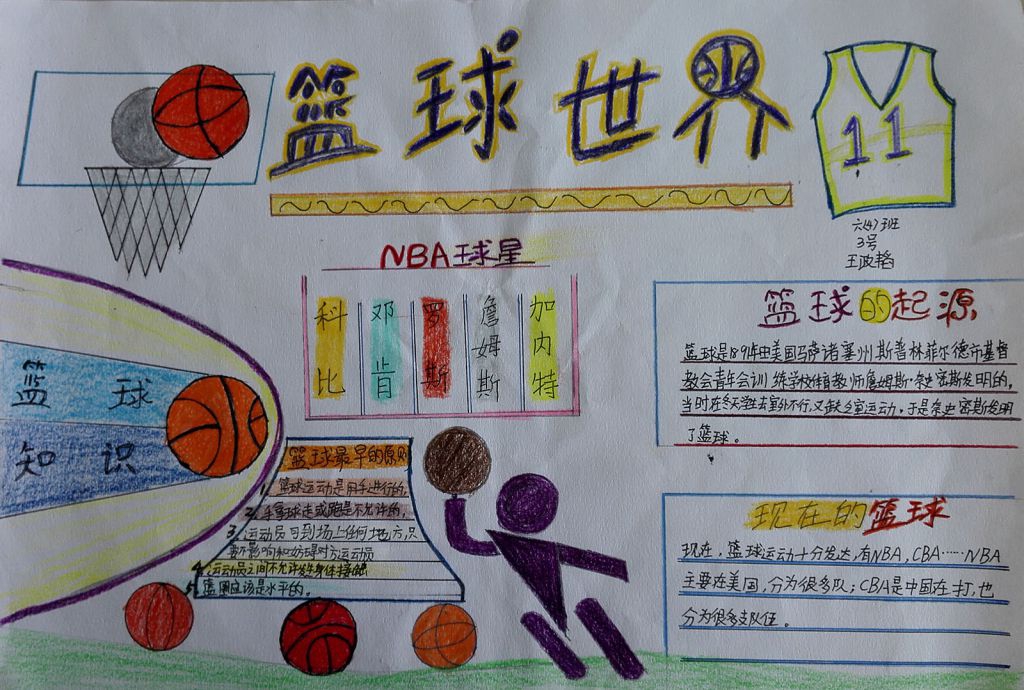 篮球世界
11
六(4)班
3号
王波韬
NBA球星
科比
邓肯
罗斯
詹姆斯
加内特
篮球的起源
篮球是1891年由美国马萨诸塞州斯普林菲尔德市基督
教会青年会训练学校体育教师詹姆斯·奈史密斯发明的,
当时在冬天学生去室外不行,又缺乏室运动,于是奈史密斯发明
了篮球。
篮球
知识
篮球最早的原则
1.篮球运动是用手进行的,
2.手拿球走或跑是不允许的,
3.运动员可到场上任何地方,只
要不影响和妨碍对方运动员
4.运动员之间不允许发生身体接触
5.篮圈应该是水平的。
现在的篮球
现在,篮球运动十分发达,有NBA,CBA……NBA
主要在美国,分为很多队;CBA是中国在打,也
分为很多支队伍。